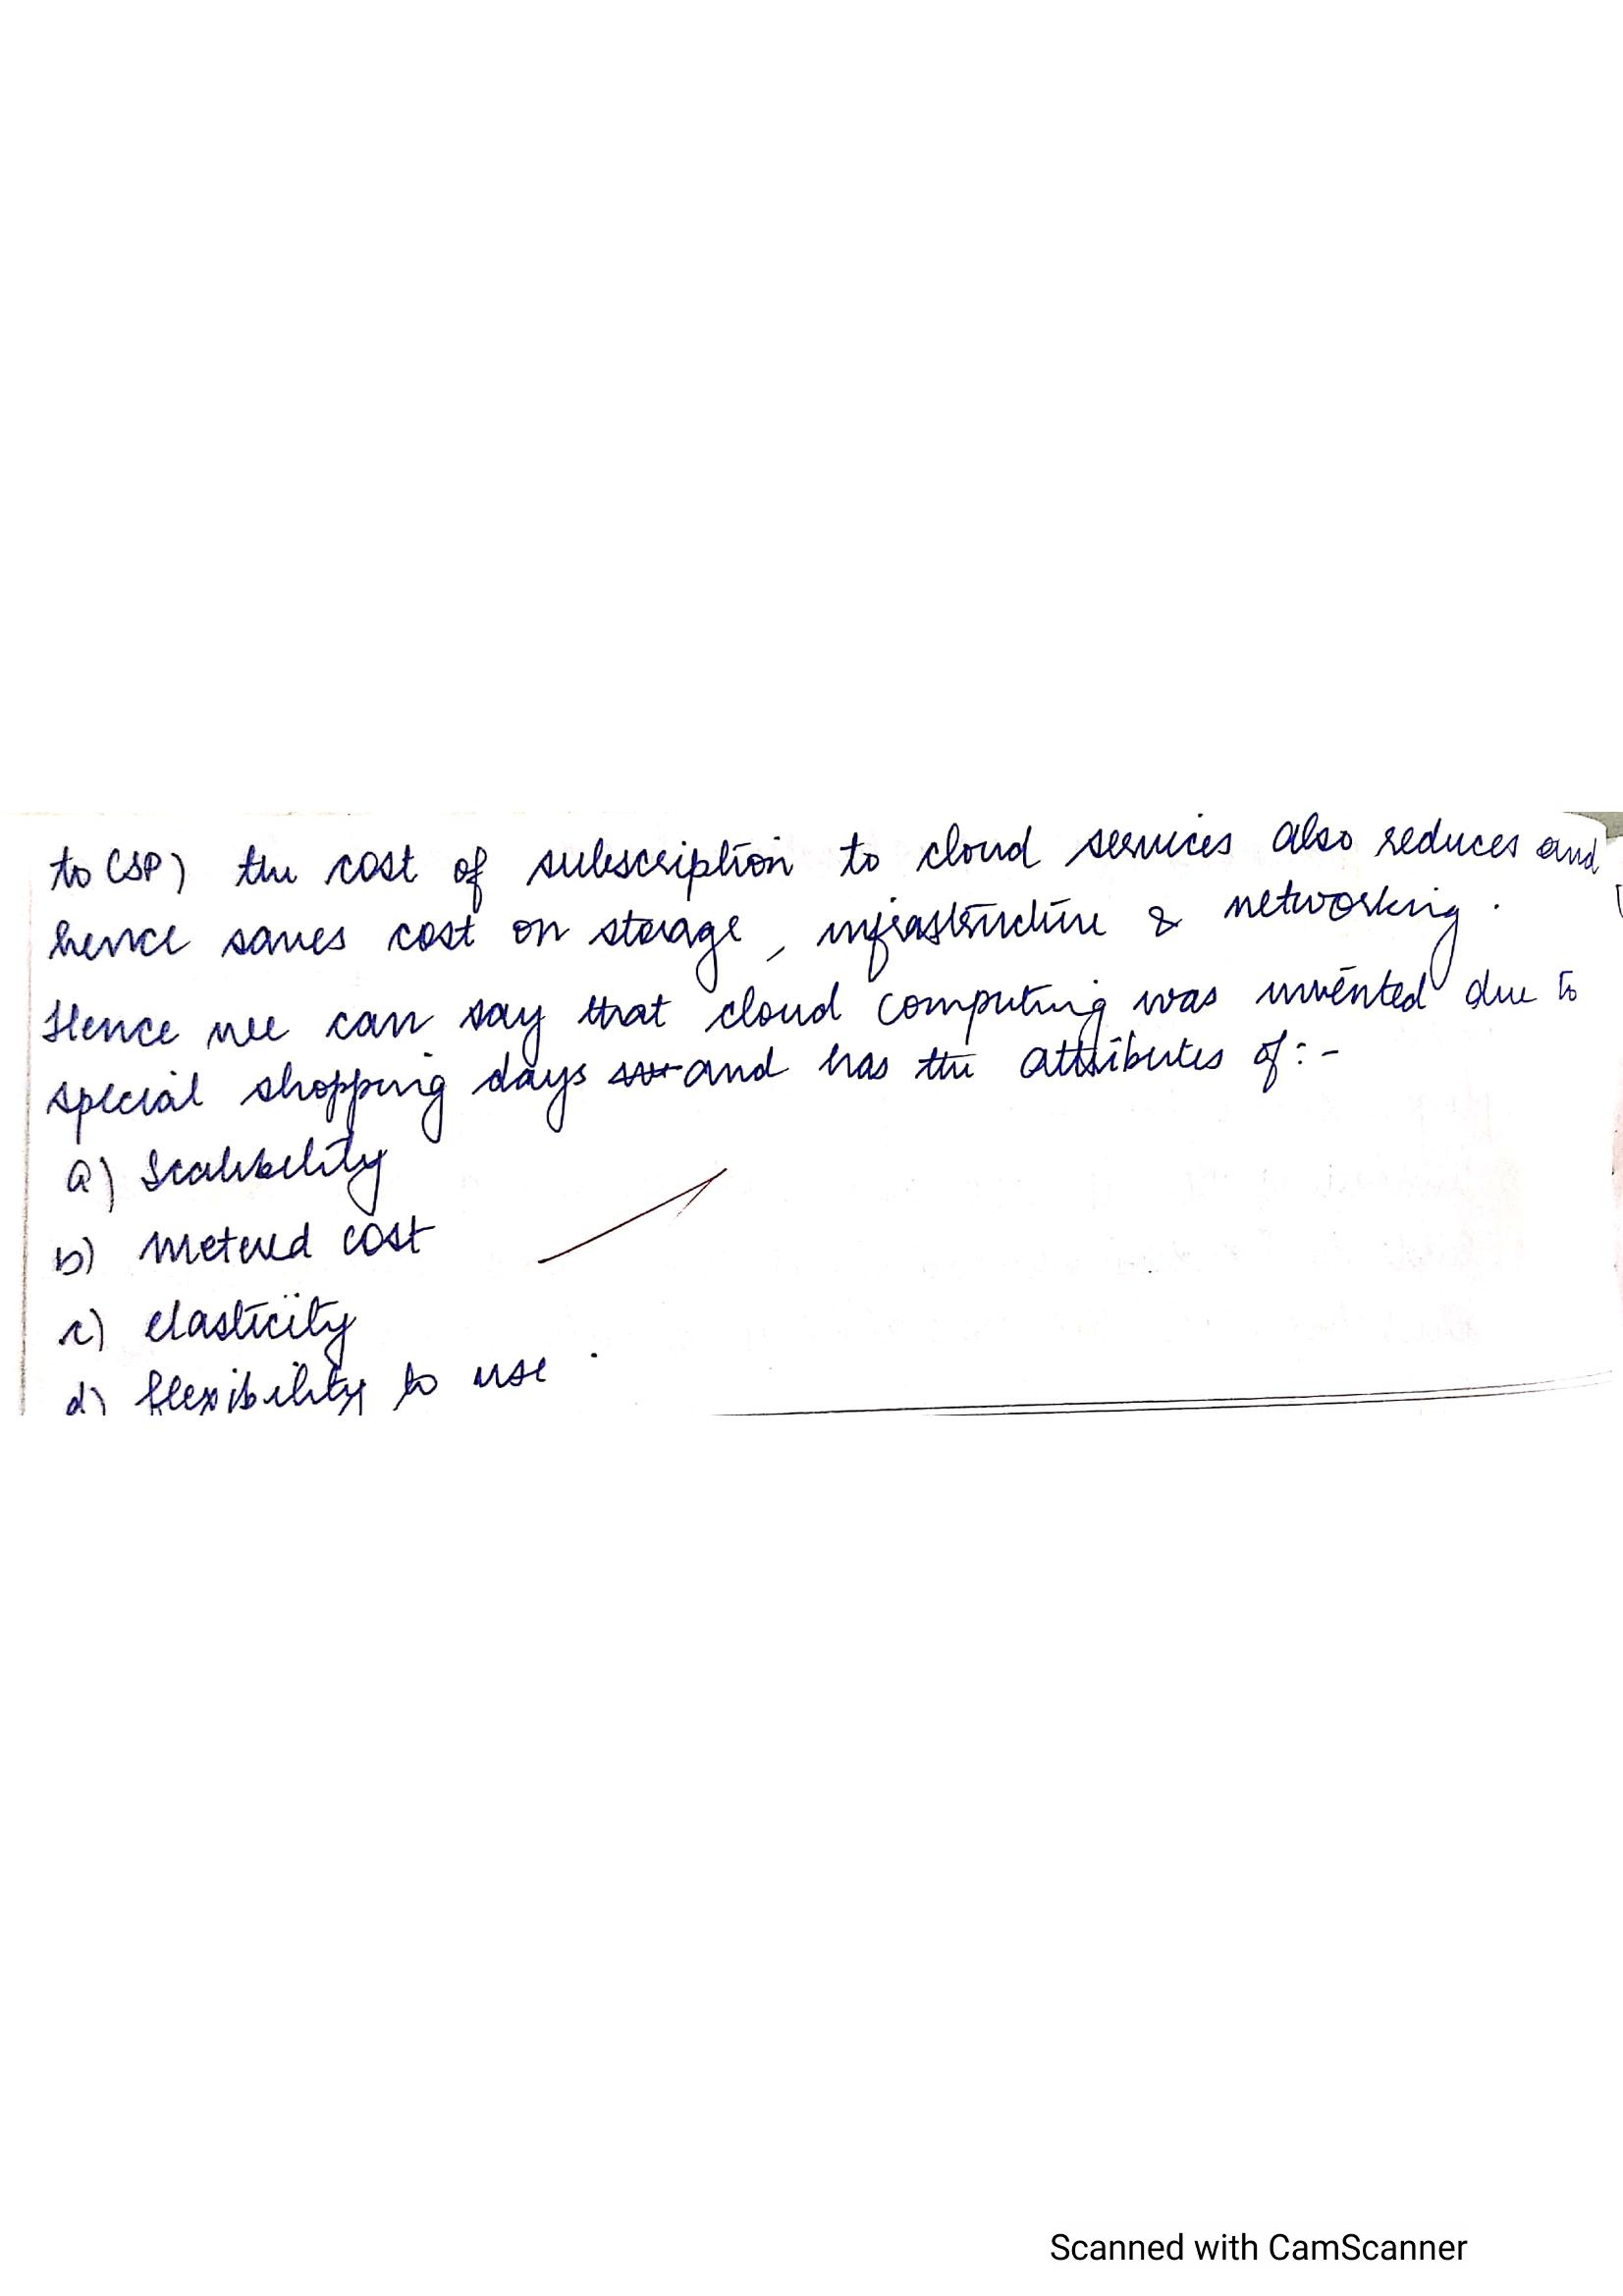 to CSP) the cost of subscription to cloud services also reduces and
hence saves cost on storage, infrastructure & networking.
Hence we can say that cloud computing was invented due to
special shopping days and has the attributes of :-
a) Scalability
b) metered cost
c) elasticity
d) flexibility to use.
Scanned with CamScanner